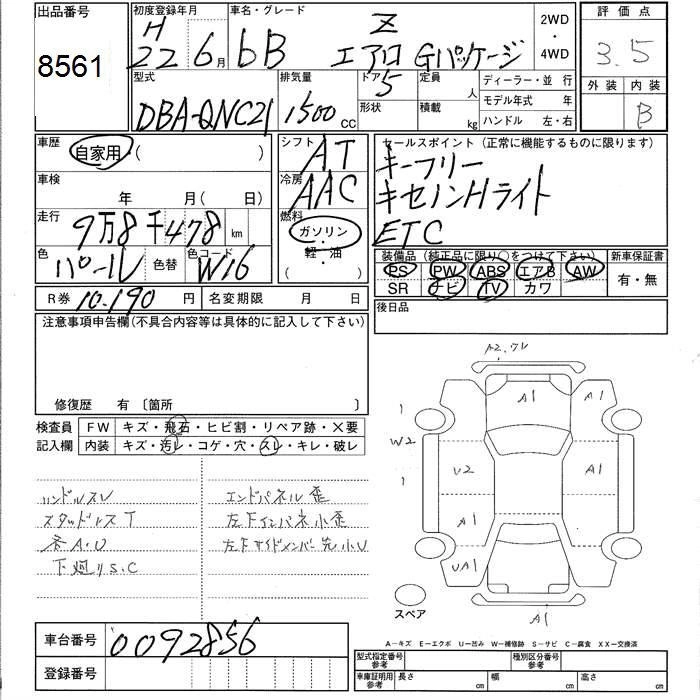 出品番号 初度登録年月 車名・グレード 2WD 評価点
8561 H 22 6月 bB Z エアロ Gパッケージ ・ 4WD 3.5
型式 排気量 ドア 5 定員 人 ディーラー・並 行 外装 内装
DBA-QNC21 1500 CC 形状 積載 kg モデル年式 年 B
ハンドル 左・右
車歴 自家用・( ) シフト AT セールスポイント (正常に機能するものに限ります)
車検 年 月( 日) 冷房 AAC キーフリー
走行 9万8千478 km 燃料 ガソリン キセノンHライト
軽・油 ( ) ETC
色 パール 色替 色コード W16 装備品 (純正品に限り○をつけて下さい) 新車保証書
PS PW ABS エアB AW 有・無
SR ナビ TV カワ
R券 10.190 円 名変期限 月 日 後日品
注意事項申告欄(不具合内容等は具体的に記入して下さい)
修復歴 有 〔箇所 〕
検査員 FW キズ・飛石・ヒビ割・リペア跡・X要
記入欄 内装 キズ・汚レ・コゲ・穴・スレ・キレ・破レ
ハンドルスレ エンドパネル歪
スタッドレスT 左下インパネ小歪
各A.U 左下サイドメンバー先小U
下廻りS.C
A2.ワレ
A1 A1
1
W2 U2 A1
1
A1
UA1
スペア A1
A-キズ E-エクボ U-凹み W-補修跡 S-サビ C-腐食 XX-交換済
車台番号 0092856
登録番号
型式指定番号 参考 種別区分番号 参考
車庫証明用 参考 長さ cm 幅 cm 高さ cm